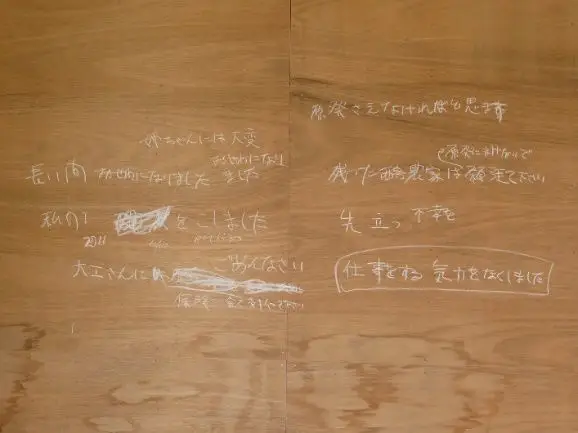 原発さえなければと思ます
残った酪農家は原発にまけないで頑張て下さい
先立つ不幸を
仕事をする気力をなくしました
姉ちゃんには大変おせわになりました
長い間おせわになりました
私の 限界をこしました
2011 6/10 PM 1:30
大工さんに
ごめんなさい
保険金で